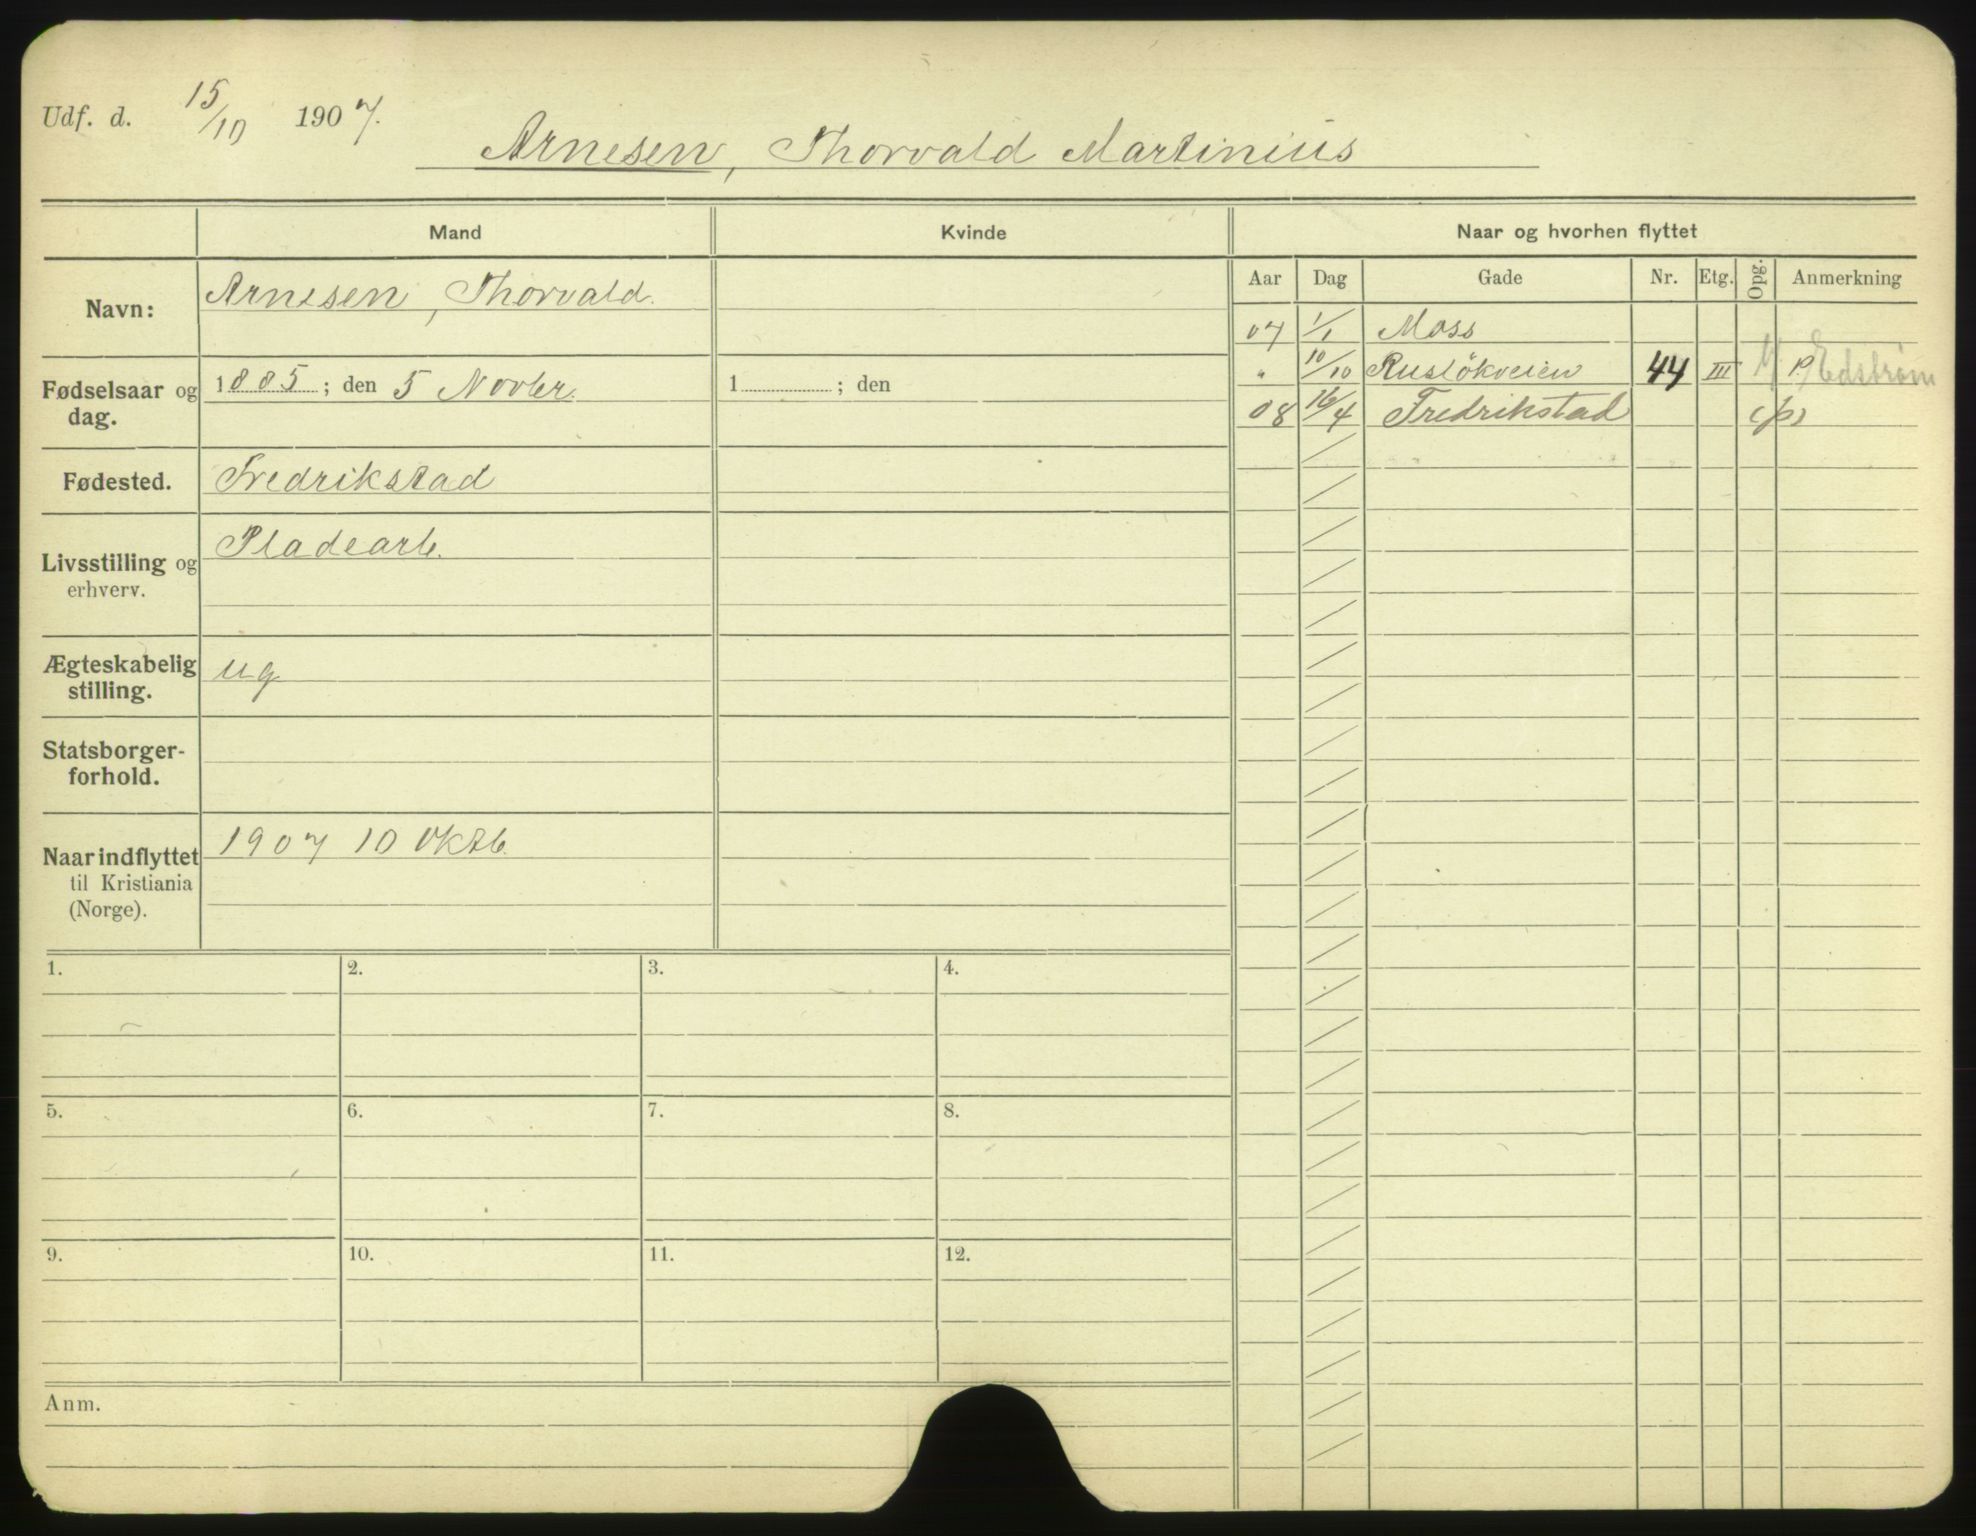 Udf. d. 15/10 1907.
Arnesen, Thorvald Martinius
Mand
Kvinde
Naar og hvorhen flyttet
Navn: Arnesen, Thorvald.
Fødselsaar og dag. 1885; den 5 Novbr.
1 ; den
Fødested. Fredrikstad
Livsstilling og erhverv. Pladearb.
Ægteskabelig stilling. ug
Statsborgerforhold.
Naar indflyttet til Kristiania (Norge). 1907 10 Oktb.
Aar Dag Gade Nr. Etg. Opg. Anmerkning
07 1/1 Moss
" 10/10 Rusløkveien 44 III P. Edstrøm
08 16/4 Fredrikstad (p)
1. 2. 3. 4.
5. 6. 7. 8.
9. 10. 11. 12.
Anm.